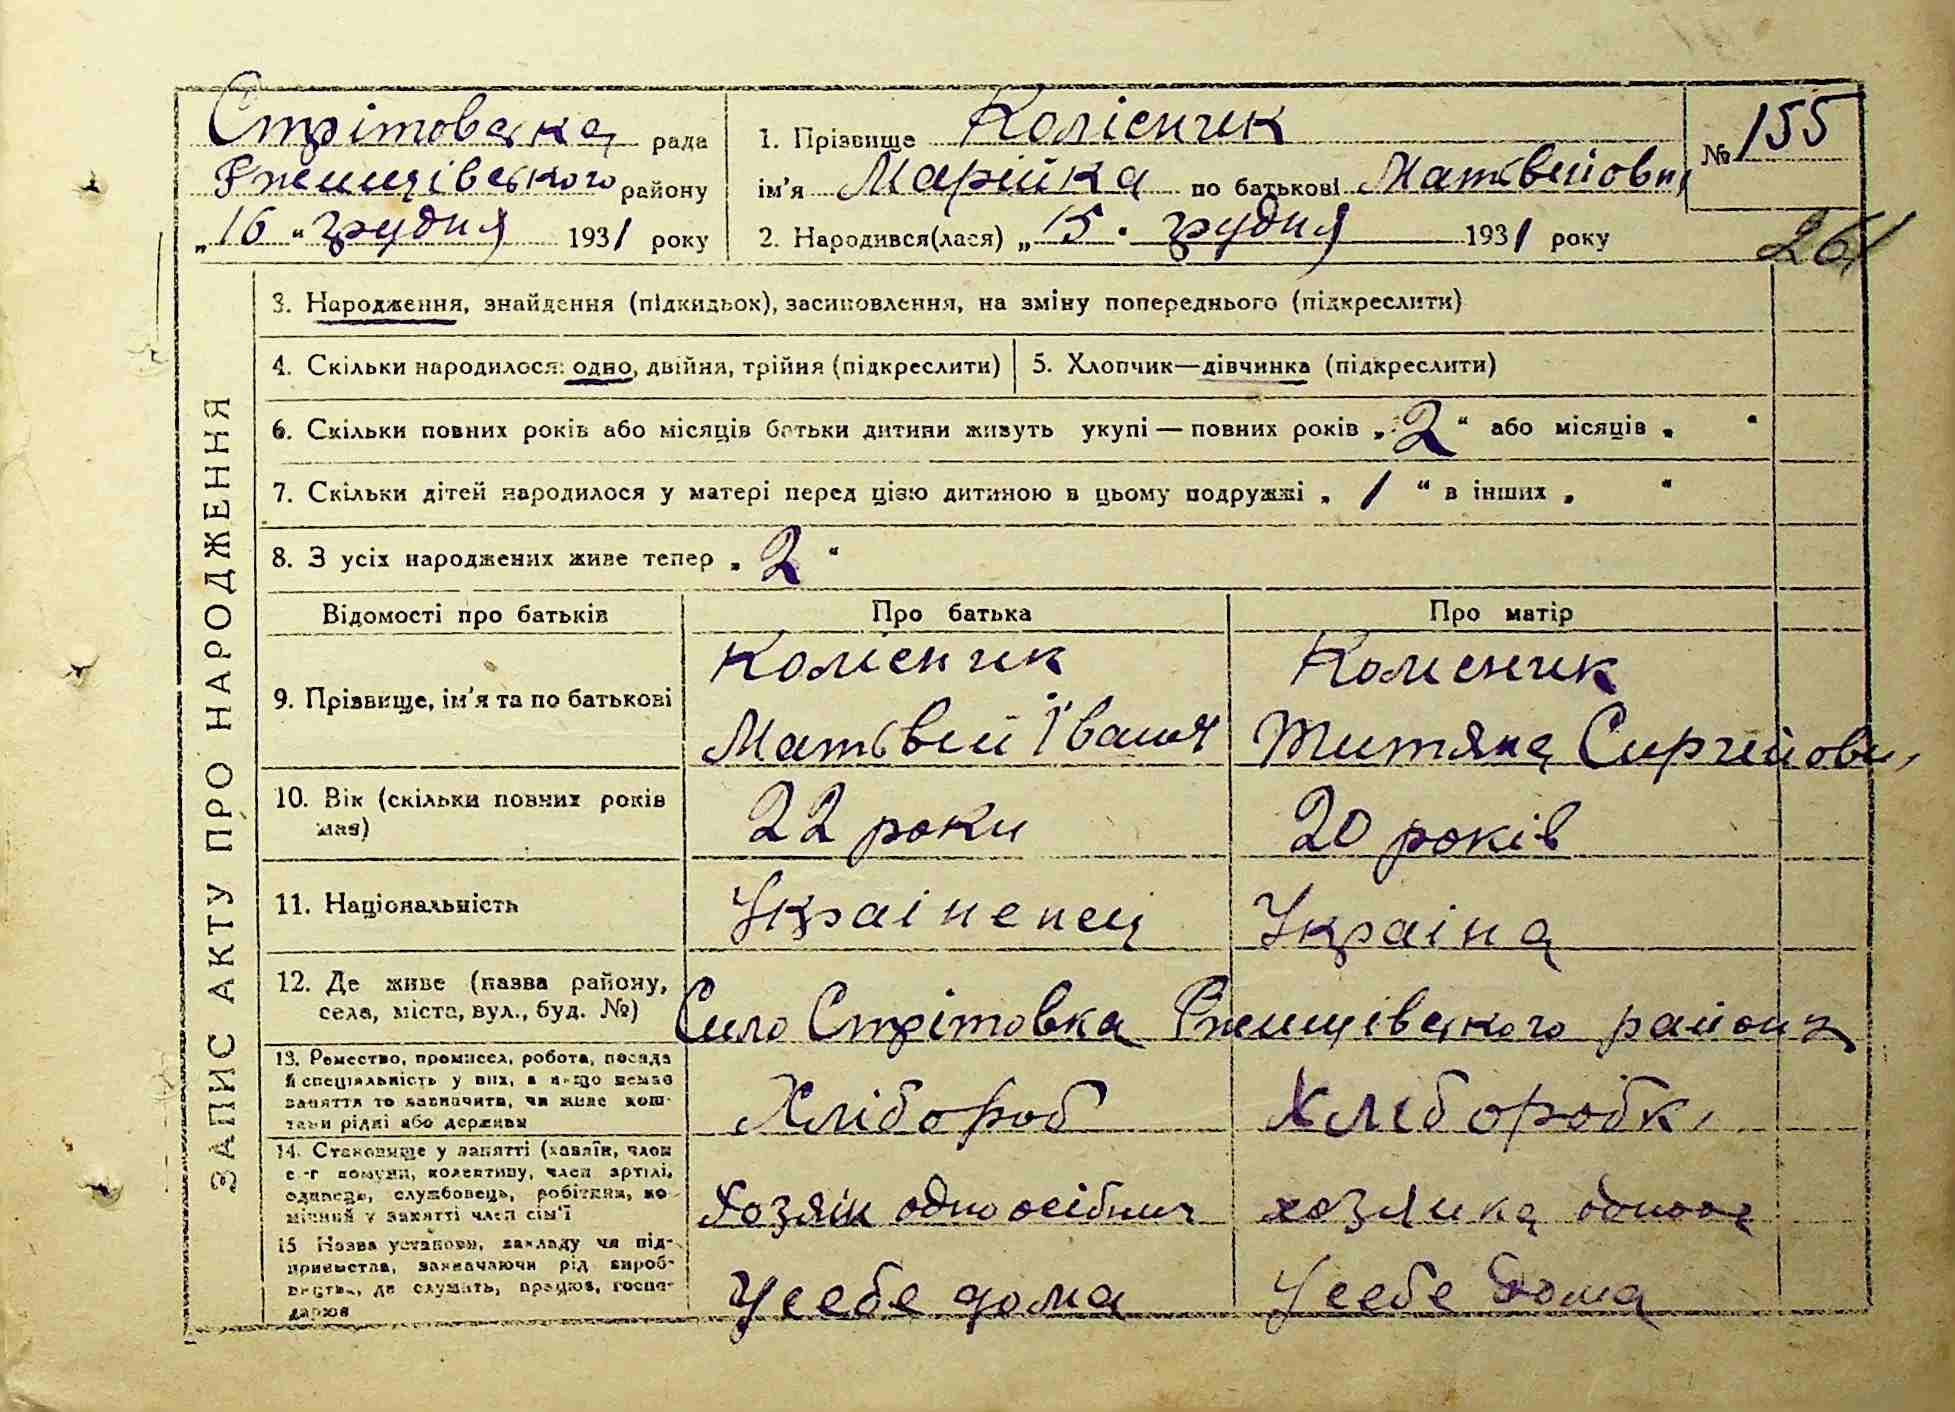 Стрітовска рада
Ржищівського району
„16“ грудня 1931 року
1. Прізвище Колієнчик
ім'я Марійка по батькові Матьвейовн
2. Народився(лася) „15“ грудня 1931 року
№ 155
261
ЗАПИС АКТУ ПРО НАРОДЖЕННЯ
3. Народження, знайдення (підкидьок), засиновлення, на зміну попереднього (підкреслити)
4. Скільки народилося: одно, двійня, трійня (підкреслити)
5. Хлопчик—дівчинка (підкреслити)
6. Скільки повних років або місяців батьки дитини живуть укупі — повних років „2“ або місяців „ “
7. Скільки дітей народилося у матері перед цією дитиною в цьому подружжі „1“ в інших „ “
8. З усіх народжених живе тепер „2“
Відомості про батьків
Про батька
Про матір
9. Прізвище, ім'я та по батькові
Колієнчик
Матьвей Іванич
Колиенчик
Титяна Сиргейовн
10. Вік (скільки повних років має)
22 роки
20 років
11. Національність
Украіненец
Украіна
12. Де живе (назва району,
села, міста, вул., буд. №)
Село Стрітовка Ржищівського району
13. Ремество, промисел, робота, посада
й спеціяльність у них, а якщо немає
заняття то зазначити, чи живе кош-
тами рідні або держави
Хлібороб
Хлиборобк
14. Становище у занятті (хазяїн, член
с-г комуни, колективу, член артілі,
одинець, службовець, робітник, по-
мічний у занятті член сім'ї
Хозяін одноосібнич
хозяика
15 Назва установи, закладу чи під-
приємства, зазначаючи рід вироб-
ництва, де служить, працює, госпо-
дарює
У себе дома
У себе дома